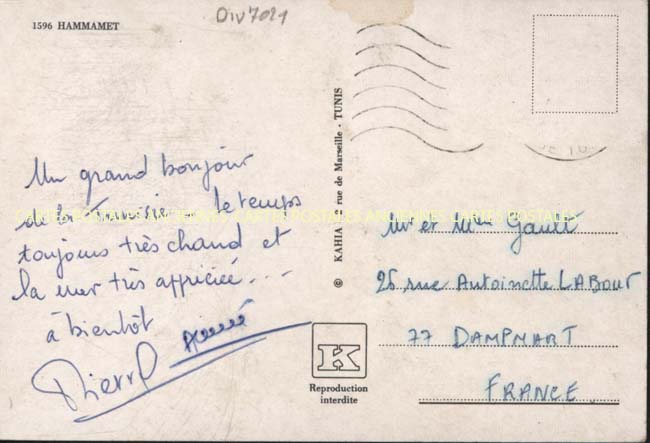 Div7021
1596 HAMMAMET
Un grand bonjour
de la Tunisie le temps
toujours très chaud et
la mer très appréciée...
à bientôt
Pierre
© KAHIA rue de Marseille - TUNIS
CARTES POSTALES ANCIENNES CARTES POSTALES ANCIENNES CARTES POSTALES
Mr et Mme Gault
26 rue Antoinette LABOUR
77 DAMPMART
FRANCE
K
Reproduction
interdite